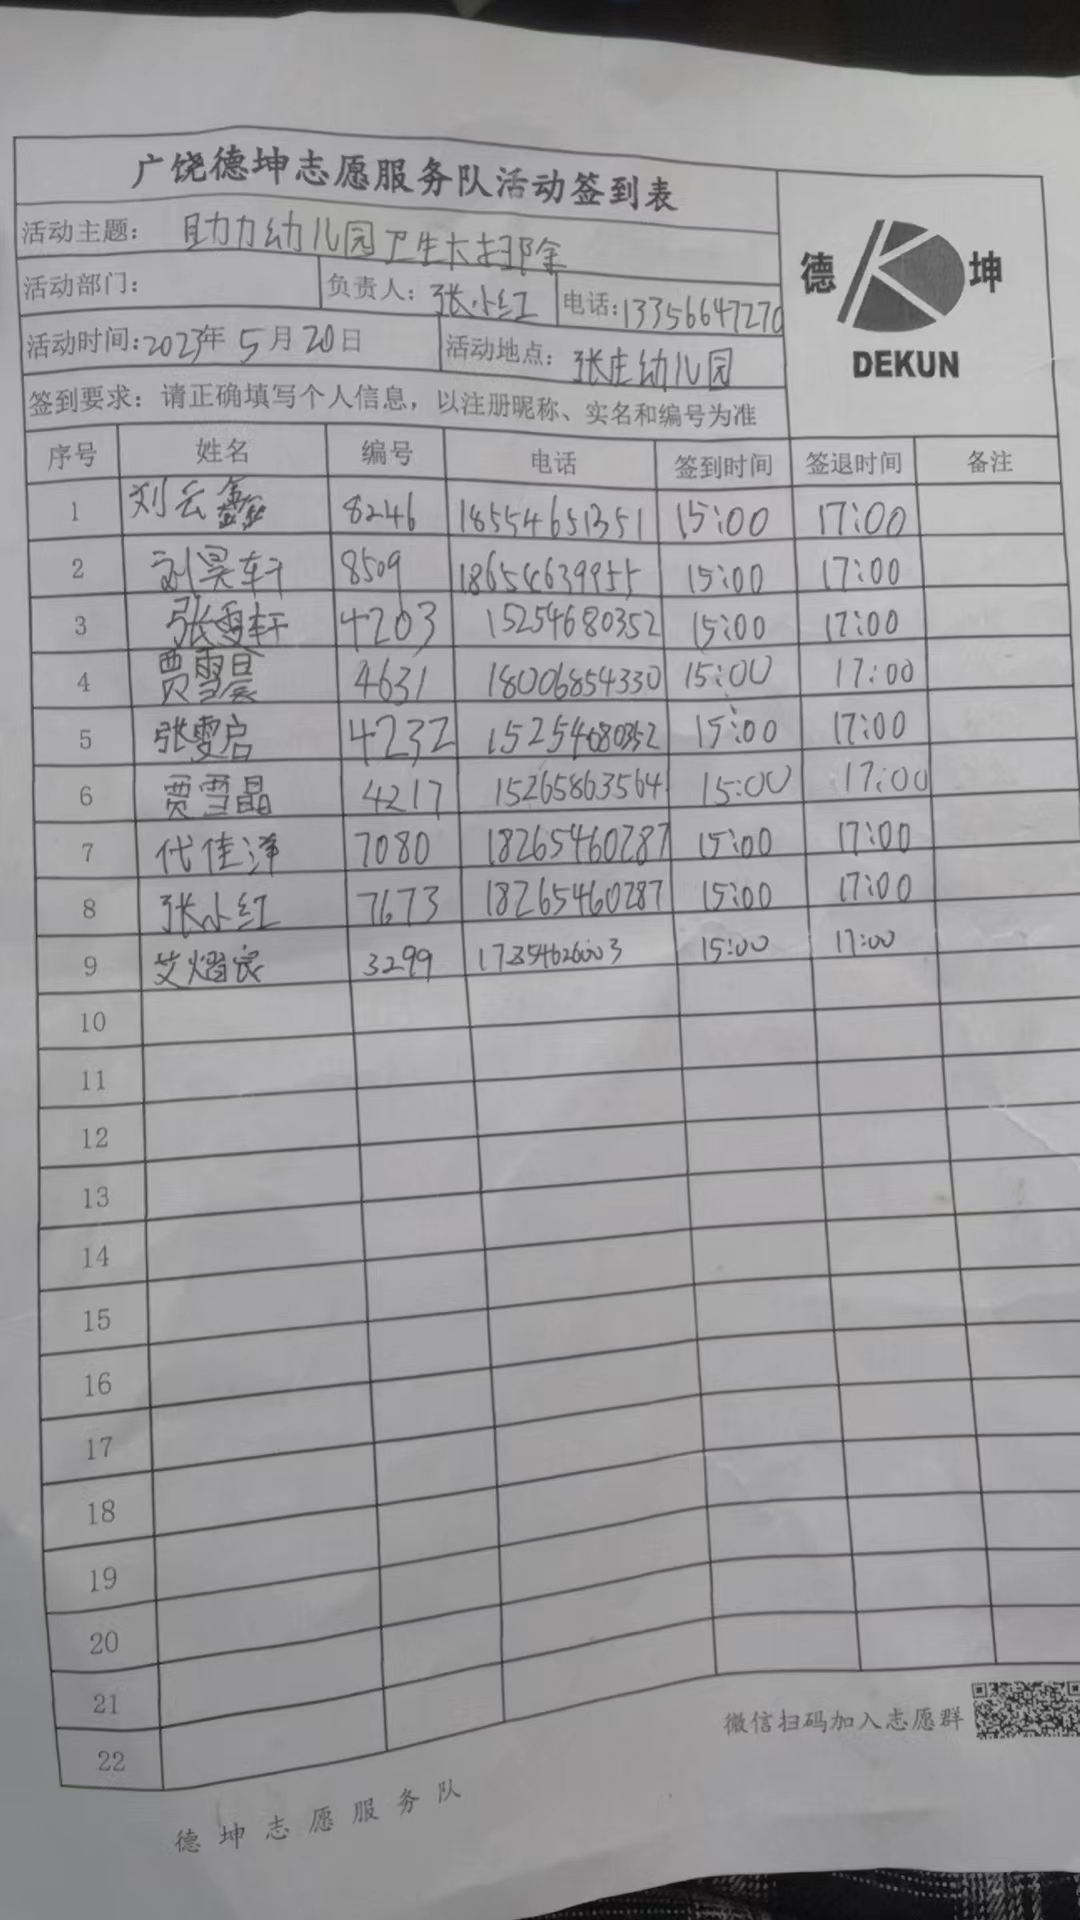 广饶德坤志愿服务队活动签到表
活动主题： 助力幼儿园卫生大扫除
德 坤
DEKUN
活动部门： 负责人：张小红 电话：13356647270
活动时间：2023年 5月 20日 活动地点：张庄幼儿园
签到要求：请正确填写个人信息，以注册昵称、实名和编号为准
序号 姓名 编号 电话 签到时间 签退时间 备注
1 刘云鑫 8246 18554651351 15:00 17:00
2 刘昊轩 8509 18654639955 15:00 17:00
3 张雯轩 4203 15254680352 15:00 17:00
4 贾雪晨 4631 18006854330 15:00 17:00
5 张雯启 4232 15254680352 15:00 17:00
6 贾雪晶 4217 15265863564 15:00 17:00
7 代佳泽 7080 18265460287 15:00 17:00
8 张小红 7673 18265460287 15:00 17:00
9 艾熠宸 3299 15:00 17:00
10
11
12
13
14
15
16
17
18
19
20
21
22
微信扫码加入志愿群
德坤志愿服务队